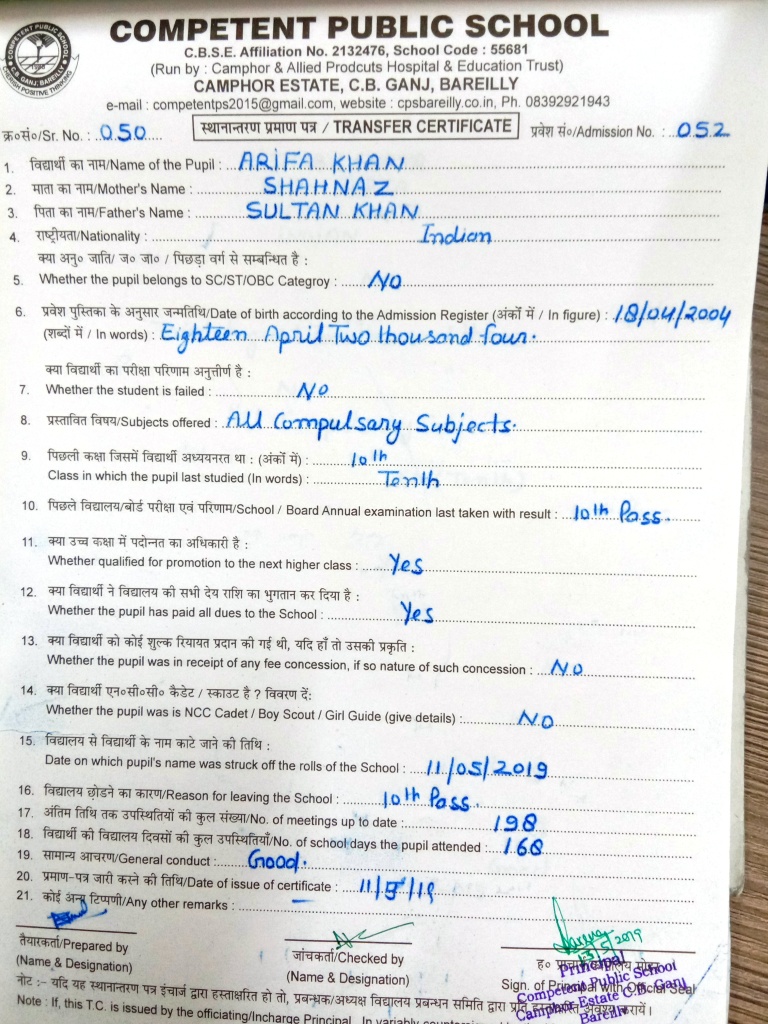 COMPETENT PUBLIC SCHOOL
C.B.S.E. Affiliation No. 2132476, School Code : 55681
(Run by : Camphor & Allied Prodcuts Hospital & Education Trust)
CAMPHOR ESTATE, C.B. GANJ, BAREILLY
e-mail : competentps2015@gmail.com, website : cpsbareilly.co.in, Ph. 08392921943
क्र०सं०/Sr. No. : 050 स्थानान्तरण प्रमाण पत्र / TRANSFER CERTIFICATE प्रवेश सं०/Admission No. : 052
1. विद्यार्थी का नाम/Name of the Pupil : ARIFA KHAN
2. माता का नाम/Mother's Name : SHAHNAZ
3. पिता का नाम/Father's Name : SULTAN KHAN
4. राष्ट्रीयता/Nationality : Indian
क्या अनु० जाति/ ज० जा० / पिछड़ा वर्ग से सम्बन्धित है :
5. Whether the pupil belongs to SC/ST/OBC Categroy : NO
6. प्रवेश पुस्तिका के अनुसार जन्मतिथि/Date of birth according to the Admission Register (अंकों में / In figure) : 18/04/2004
(शब्दों में / In words) : Eighteen April Two thousand four.
क्या विद्यार्थी का परीक्षा परिणाम अनुत्तीर्ण है :
7. Whether the student is failed : NO
8. प्रस्तावित विषय/Subjects offered : All Compulsary Subjects.
9. पिछली कक्षा जिसमें विद्यार्थी अध्ययनरत था : (अंकों में) : 10th
Class in which the pupil last studied (In words) : Tenth
10. पिछले विद्यालय/बोर्ड परीक्षा एवं परिणाम/School / Board Annual examination last taken with result : 10th Pass.
11. क्या उच्च कक्षा में पदोन्नत का अधिकारी है :
Whether qualified for promotion to the next higher class : Yes
12. क्या विद्यार्थी ने विद्यालय की सभी देय राशि का भुगतान कर दिया है :
Whether the pupil has paid all dues to the School : Yes
13. क्या विद्यार्थी को कोई शुल्क रियायत प्रदान की गई थी, यदि हाँ तो उसकी प्रकृति :
Whether the pupil was in receipt of any fee concession, if so nature of such concession : NO
14. क्या विद्यार्थी एन०सी०सी० कैडेट / स्काउट है ? विवरण दें:
Whether the pupil was is NCC Cadet / Boy Scout / Girl Guide (give details) : NO
15. विद्यालय से विद्यार्थी के नाम काटे जाने की तिथि :
Date on which pupil's name was struck off the rolls of the School : 11/05/2019
16. विद्यालय छोडने का कारण/Reason for leaving the School : 10th Pass.
17. अंतिम तिथि तक उपस्थितियों की कुल संख्या/No. of meetings up to date : 198
18. विद्यार्थी की विद्यालय दिवसों की कुल उपस्थितियाँ/No. of school days the pupil attended : 168
19. सामान्य आचरण/General conduct : Good.
20. प्रमाण-पत्र जारी करने की तिथि/Date of issue of certificate : 11/5/19
21. कोई अन्य टिप्पणी/Any other remarks :
तैयारकर्ता/Prepared by जांचकर्ता/Checked by
(Name & Designation) (Name & Designation) Sign. of Principal with Official Seal
Principal
Competent Public School
Camphor Estate C.B. Ganj
Bareilly
नोट :- यदि यह स्थानान्तरण पत्र इंचार्ज द्वारा हस्ताक्षरित हो तो, प्रबन्धक/अध्यक्ष विद्यालय प्रबन्धन समिति द्वारा प्रति हस्ताक्षर अवश्य करायें।
Note : If, this T.C. is issued by the officiating/Incharge Principal. In variably